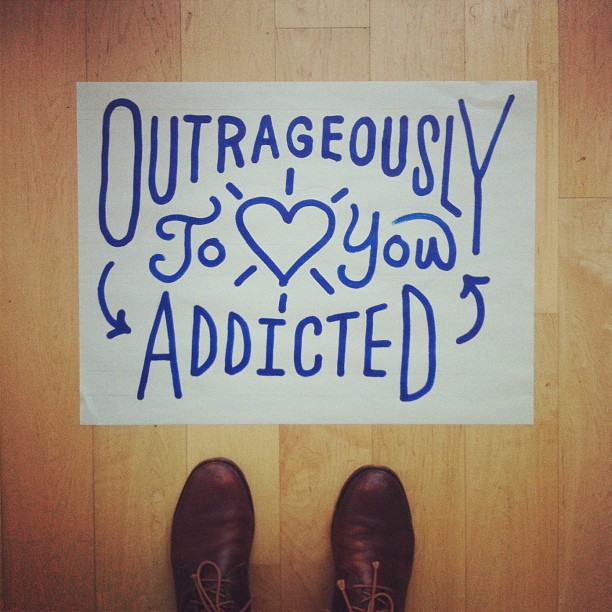 OUTRAGEOUSLY
To You
ADDICTED